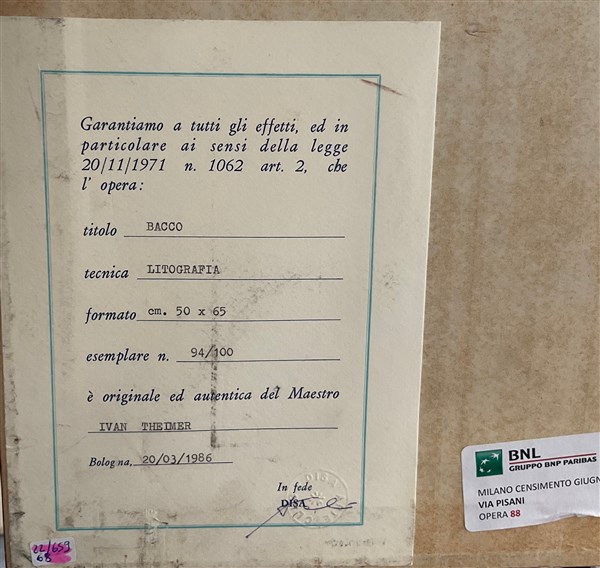 Garantiamo a tutti gli effetti, ed in
particolare ai sensi della legge
20/11/1971 n. 1062 art. 2, che
l' opera:
titolo BACCO
tecnica LITOGRAFIA
formato cm. 50 x 65
esemplare n. 94/100
è originale ed autentica del Maestro
IVAN THEIMER
Bologna, 20/03/1986
In fede
DISA
22/659
68
BNL
GRUPPO BNP PARIBAS
MILANO CENSIMENTO GIUGN
VIA PISANI
OPERA 88